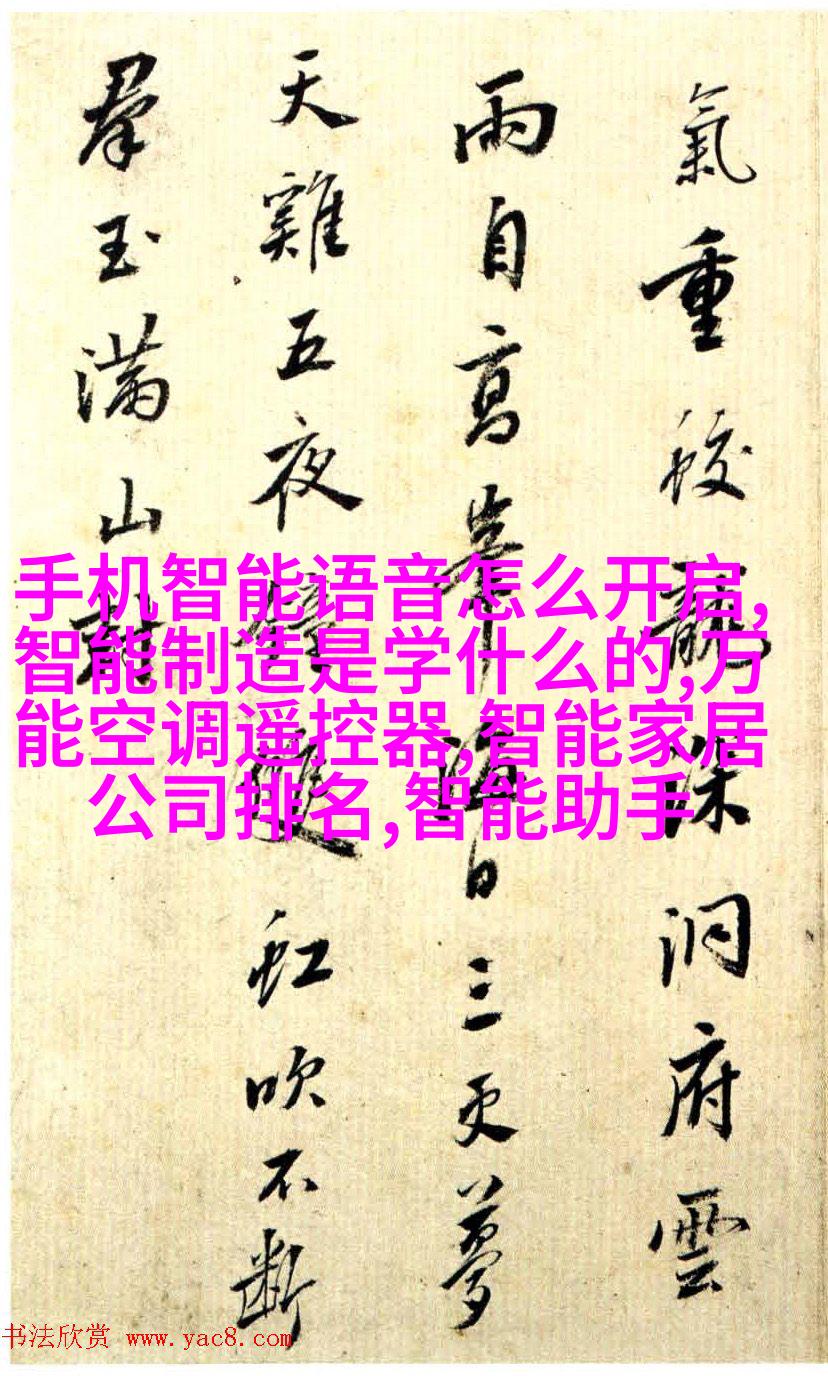 氣重蛟龍深洞府雲
雨自高峯海日三更夢
天雞五夜鐘雙虹吹不斷
羣玉滿山
手机智能语音怎么开启,
智能制造是学什么的,万
能空调遥控器,智能家居
公司排名,智能助手
书法欣赏 www.yac8.com